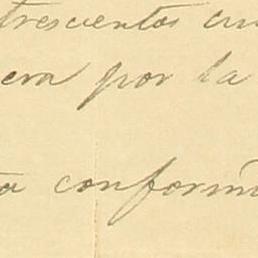 trescientos
era por la
ta conform